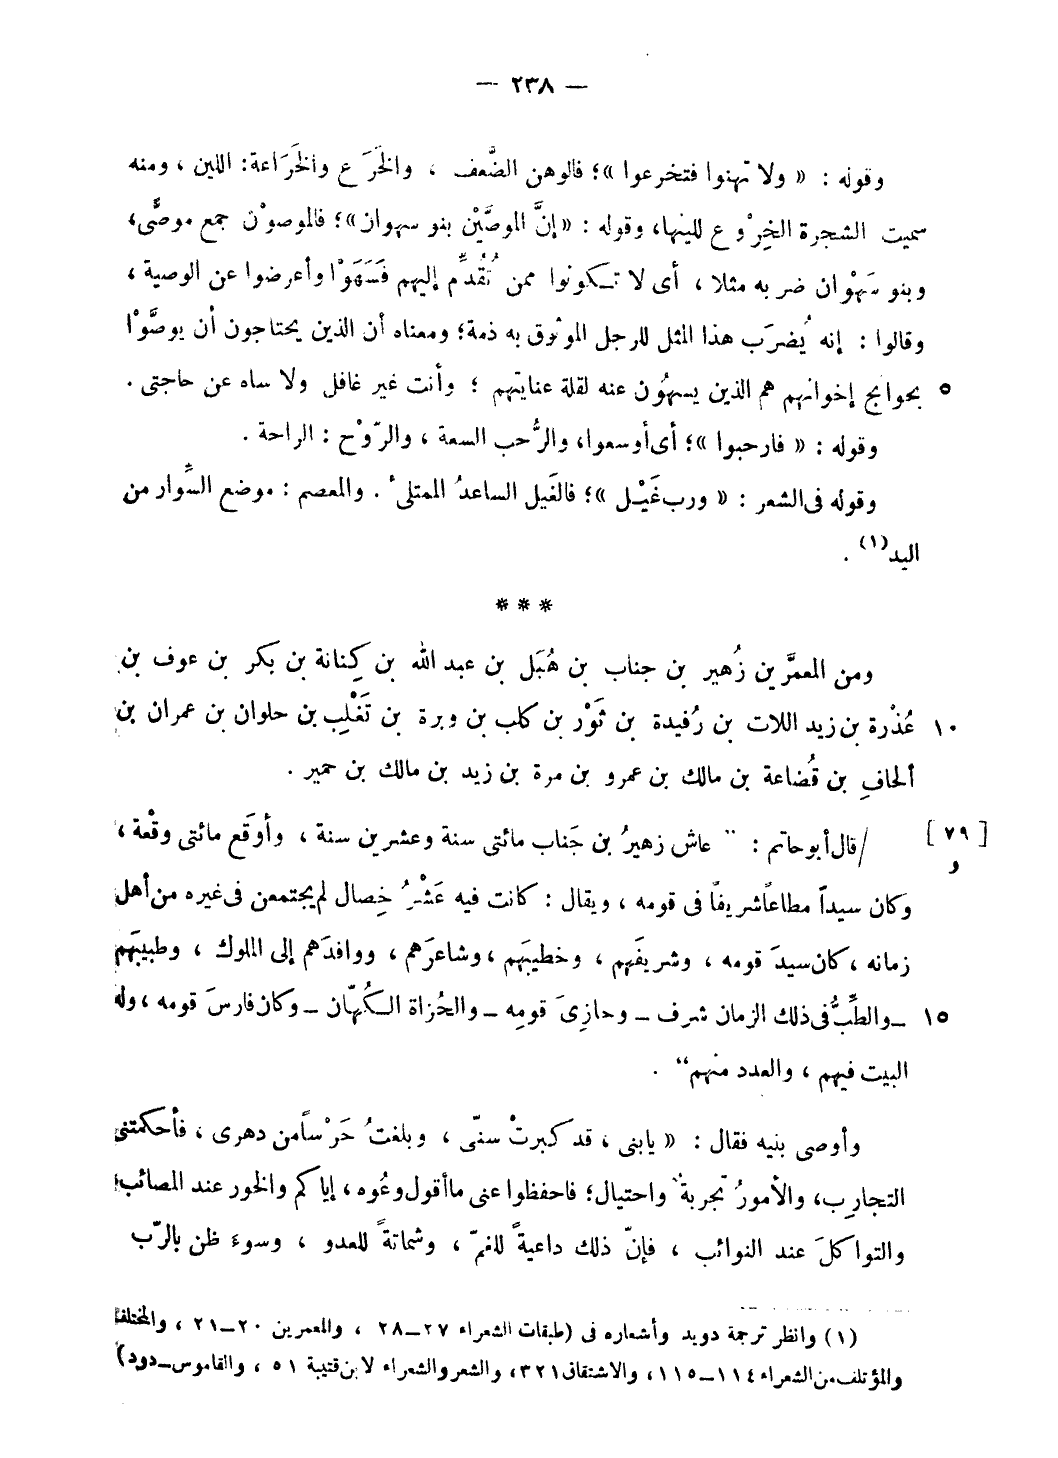 — ٢٣٨ —
وقوله : « ولا تهنوا فتخرعوا »؛ فالوهن الضَّعف ، والخَرَع والخَرَاعة: اللين ، ومنه
سميت الشجرة الخِرْوع للينها، وقوله : « إنَّ الموصَّيْن بنو سهوان »؛ فالموصوْن جمع موصًّى،
وبنو سَهْوان ضربه مثلا ، أى لا تكونوا ممن تُقُدِّم إليهم فَسَهَوْا وأعرضوا عن الوصية ،
وقالوا : إنه يُضرَب هذا المثل للرجل الموثوق به ذمة؛ ومعناه أن الذين يحتاجون أن يوصَّوْا
٥ بحوايج إخوانهم هم الذين يسهُون عنه لقلة عنايتهم ؛ وأنت غير غافل ولا ساه عن حاجتى .
وقوله : « فارحبوا »؛ أى أوسعوا، والرُّحب السعة ، والرّوْح : الراحة .
وقوله فى الشعر : « ورب غَيْل »؛ فالغَيل الساعدُ الممتلئ . والمعصم : موضع السِّوار من
اليد(١) .
* * *
ومن المعمَّرين زُهير بن جناب بن هُبَل بن عبد الله بن كِنانة بن بكر بن عوف بن
١٠ عُذْرة بن زيد اللات بن رُفيدة بن ثَوْر بن كلب بن وبرة بن تَغْلِب بن حلوان بن عمران بن
ألحافِ بن قُضاعة بن مالك بن عمرو بن مرة بن زيد بن مالك بن حمير .
[٧٩ و] /قال أبو حاتم : " عاش زهيرُ بن جَناب مائتى سنة وعشرين سنة ، وأوقَع مائتى وقْعة ،
وكان سيداً مطاعاً شريفاً فى قومه ، ويقال : كانت فيه عَشْرُ خِصال لم يجتمعن فى غيره من أهل
زمانه ، كان سيدَ قومه ، وشريفَهم ، وخطيبَهم ، وشاعرَهم ، ووافدَهم إلى الملوك ، وطبيبَهم
١٥ ــ والطِّبُّ فى ذلك الزمان شرف ــ وحازِىَ قومِه ــ والحُزاة الكُهّان ــ وكان فارسَ قومه ، وله
البيت فيهم ، والعدد منهم" .
وأوصى بنيه فقال : « يابنى ، قد كبرتْ سنّى ، وبلغتُ حَرْساً من دهرى ، فأحكمتنى
التجارِب، والأمورُ تجربةٌ واحتيال؛ فاحفظوا عنى ما أقول وعُوه ، إياكم والخور عند المصائب؛
والتواكلَ عند النوائب ، فإنّ ذلك داعيةً للغمّ ، وشماتةً للعدو ، وسوءَ ظن بالرّب
(١) وانظر ترجمة دويد وأشعاره فى (طبقات الشعراء ٢٧ــ٢٨ ، والمعمرين ٢٠ــ٢١ ، والمختلف
والمؤتلف من الشعراء ١١٤ــ١١٥، والاشتقاق ٣٢١، والشعر والشعراء لابن قتيبة ٥١ ، والقاموس ــ دود)